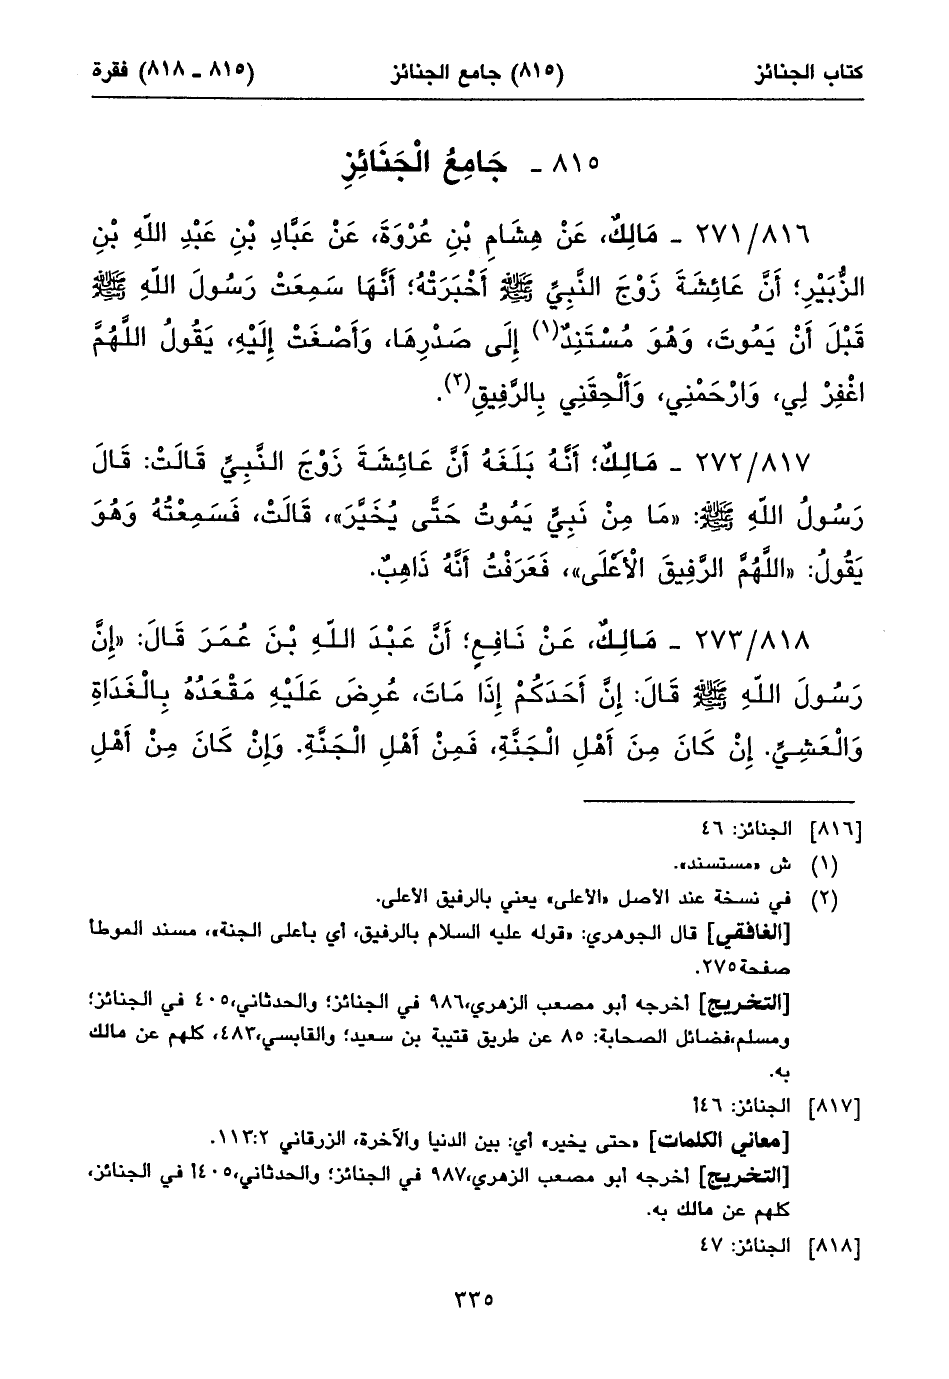 كتاب الجنائز (٨١٥) جامع الجنائز (٨١٥ ـ ٨١٨) فقرة
٨١٥ ـ جَامِعُ الْجَنَائِزِ
٢٧١/٨١٦ ـ مَالِكٌ، عَنْ هِشَامِ بْنِ عُرْوَةَ، عَنْ عَبَّادِ بْنِ عَبْدِ اللّهِ بْنِ
الزُّبَيْرِ؛ أَنَّ عَائِشَةَ زَوْجَ النَّبِيِّ ﷺ أَخْبَرَتْهُ؛ أَنَّهَا سَمِعَتْ رَسُولَ اللّهِ ﷺ
قَبْلَ أَنْ يَمُوتَ، وَهُوَ مُسْتَنِدٌ(١) إِلَى صَدْرِهَا، وَأَصْغَتْ إِلَيْهِ، يَقُولُ اللَّهُمَّ
اغْفِرْ لِي، وَارْحَمْنِي، وَأَلْحِقَنِي بِالرَّفِيقِ(٢).
٢٧٢/٨١٧ ـ مَالِكٌ؛ أَنَّهُ بَلَغَهُ أَنَّ عَائِشَةَ زَوْجَ النَّبِيِّ قَالَتْ: قَالَ
رَسُولُ اللّهِ ﷺ: «مَا مِنْ نَبِيٍّ يَمُوتُ حَتَّى يُخَيَّرَ»، قَالَتْ، فَسَمِعْتُهُ وَهُوَ
يَقُولُ: «اللَّهُمَّ الرَّفِيقَ الْأَعْلَى»، فَعَرَفْتُ أَنَّهُ ذَاهِبٌ.
٢٧٣/٨١٨ ـ مَالِكٌ، عَنْ نَافِعٍ؛ أَنَّ عَبْدَ اللّهِ بْنَ عُمَرَ قَالَ: «إِنَّ
رَسُولَ اللّهِ ﷺ قَالَ: إِنَّ أَحَدَكُمْ إِذَا مَاتَ، عُرِضَ عَلَيْهِ مَقْعَدُهُ بِالْغَدَاةِ
وَالْعَشِيِّ. إِنْ كَانَ مِنَ أَهْلِ الْجَنَّةِ، فَمِنْ أَهْلِ الْجَنَّةِ. وَإِنْ كَانَ مِنْ أَهْلِ
[٨١٦] الجنائز: ٤٦
(١) ش «مستسند».
(٢) في نسخة عند الأصل «الأعلى» يعني بالرفيق الأعلى.
[الغافقي] قال الجوهري: «قوله عليه السلام بالرفيق، أي بأعلى الجنة»، مسند الموطأ
صفحة٢٧٥.
[التخريج] أخرجه أبو مصعب الزهري،٩٨٦ في الجنائز؛ والحدثاني،٤٠٥ في الجنائز؛
ومسلم،فضائل الصحابة: ٨٥ عن طريق قتيبة بن سعيد؛ والقابسي،٤٨٣، كلهم عن مالك
به.
[٨١٧] الجنائز: ٤٦أ
[معاني الكلمات] «حتى يخير» أي: بين الدنيا والآخرة، الزرقاني ١١٣:٢.
[التخريج] أخرجه أبو مصعب الزهري،٩٨٧ في الجنائز؛ والحدثاني،٤٠٥أ في الجنائز،
كلهم عن مالك به.
[٨١٨] الجنائز: ٤٧
٣٣٥